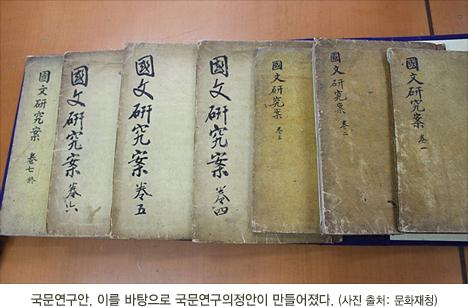 國文硏究案 卷七終
國文硏究案 卷六
國文硏究案 卷五
國文硏究案 卷四
國文硏究案 卷三
國文硏究案 卷二
國文硏究案 卷一
국문연구안. 이를 바탕으로 국문연구의정안이 만들어졌다. (사진 출처: 문화재청)